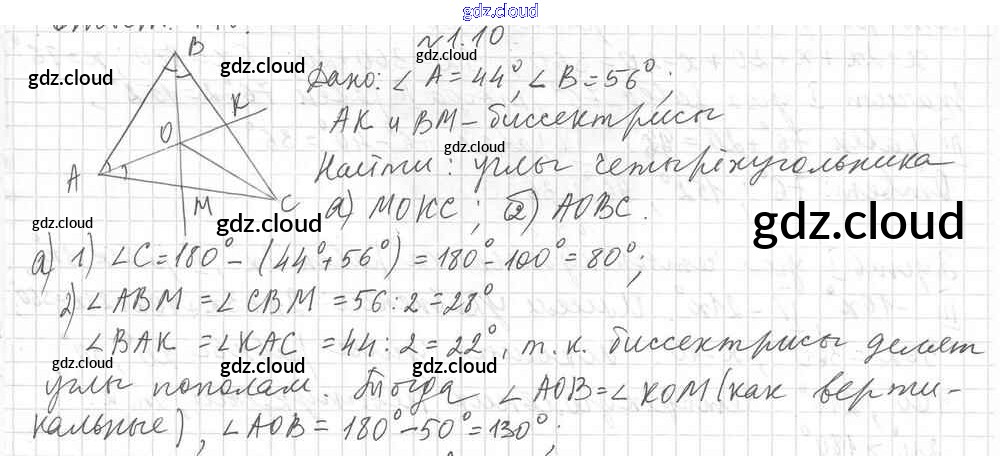 gdz.cloud
№1.10
B
gdz.cloud
gdz.cloud
Дано: ∠A = 44°, ∠B = 56°;
K
gdz.cloud
AK и BM – биссектрисы
O
gdz.cloud
Найти: углы четырёхугольника
A
M
C
а) MOKC; б) AOBC.
gdz.cloud
gdz.cloud
gdz.cloud
а) 1) ∠C = 180° – (44° + 56°) = 180° – 100° = 80°;
2) ∠ABM = ∠CBM = 56 : 2 = 28°
gdz.cloud
∠BAK = ∠KAC = 44 : 2 = 22°, т.к. биссектрисы делят
gdz.cloud
gdz.cloud
gdz.cloud
углы пополам. Тогда ∠AOB = ∠KOM (как верти-
кальные), ∠AOB = 180° – 50° = 130°;
gdz.cloud
gdz.cloud
gdz.cloud